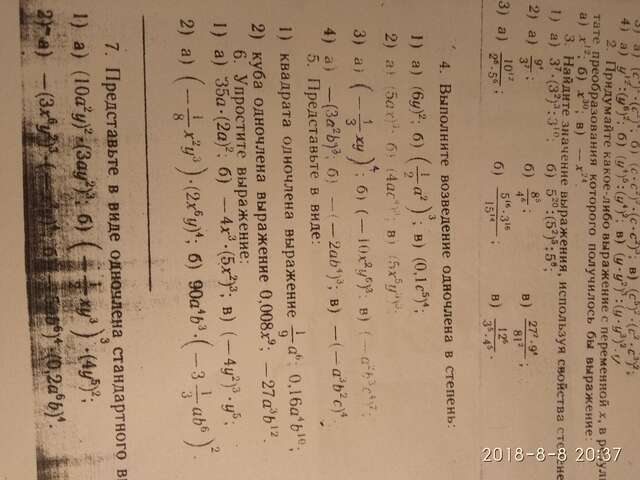 4) а) y¹²:(y⁶)²; б)
2. Придумайте какое-либо выражение с переменной x, в резуль
тате преобразования которого получилось бы выражение:
а) x¹²; б) x³⁰; в) −x²⁴
3. Найдите значение выражения, используя свойства степени
1) а) 3⁷·(3²)³:3¹⁰; б) 5²⁰:(5²)⁵:5⁸;
2) а) 9⁴/3⁷; б) 8⁵/4⁶; в) 27²·9⁴/81²
3) а) 10¹²/2⁶·5⁶; б) 5¹⁶·3¹⁶/15¹⁴; в) 12⁶/3⁵·4⁵
4. Выполните возведение одночлена в степень:
1) а) (6y)²; б) (1/2 a²)³; в) (0,1c⁵)⁴;
2) а) (5ax)³; б) в)
3) а) (−1/3 xy)⁴; б) (−10x²y⁶)³; в)
4) а) −(3a²b)³; б) −(−2ab⁴)³; в) −(−a³b²c)⁴.
5. Представьте в виде:
1) квадрата одночлена выражение 1/9 a⁶; 0,16a⁴b¹⁰;
2) куба одночлена выражение 0,008x⁹; −27a³b¹².
6. Упростите выражение:
1) а) 35a·(2a)²; б) −4x³·(5x²)³; в) (−4y²)³·y⁵;
2) а) (−1/8 x²y³)·(2x⁶y)⁴; б) 90a⁴b³·(−3 1/3 ab⁶)²
7. Представьте в виде одночлена стандартного ви
1) а) (10a²y)²·(3ay²)³; б) (−1/8 xy³)³·(4y⁵)²;
2) а) (0,2a⁶b)⁴.
2018-8-8 20:37